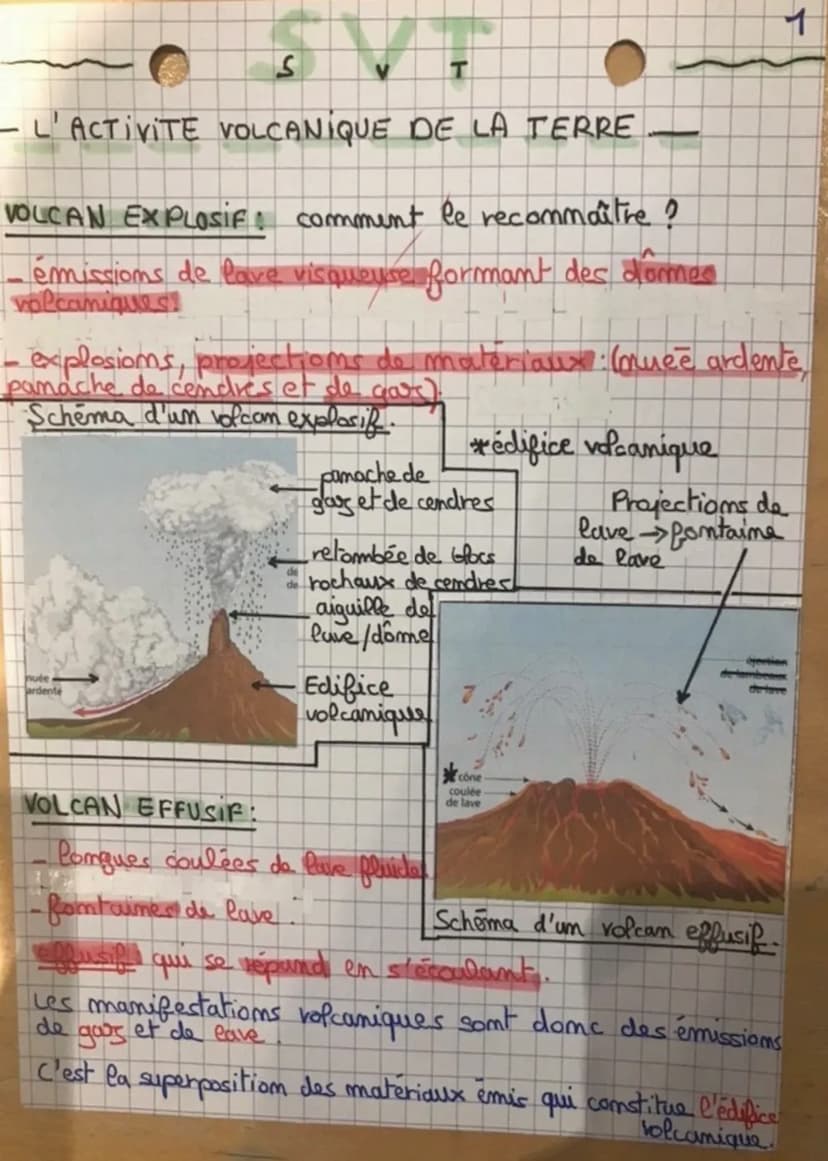 1
SVT
S V T
- L'ACTIVITE VOLCANIQUE DE LA TERRE -
VOLCAN EXPLOSIF : comment le reconnaître ?
- émissions de lave visqueuse formant des dômes
volcaniques.
- explosions, projections de matériaux : (nueé ardente,
panache de cendres et de gaz).
Schéma d'un volcan explosif.
*édifice volcanique
panache de
gaz et de cendres
Projections de
lave → fontaine
de lave
retombée de blocs
de
de rochaux de cendres
aiguille de
lave/dôme
nuée
ardente
Edifice
volcanique
éjection
de lambeaux
de lave
* cône
coulée
de lave
VOLCAN EFFUSIF :
- longues coulées de lave fluide
- fontaines de lave :
Schéma d'un volcan effusif.
effusif qui se répand en s'écoulant.
Les manifestations volcaniques sont donc des émissions
de gaz et de lave.
C'est la superposition des matériaux émis qui constitue l'édifice
volcanique.